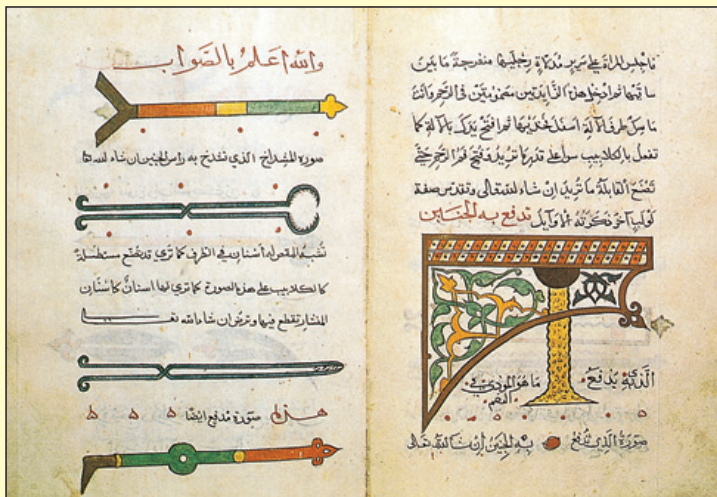 فاجلس المرأة على سرير مُدلاة رجليها منفرجةً ما بَين
ساقيها ثم ادخل هذه الزايدتين مضمومتَين في الرحم وانت
ماسك طرف الآلة اسفل فخذيها ثم افتح يدك بالآلة كما
تفعل بالكلاليب سوا على قدر ما تريد تفتح فم الرحم حتى
تصنع القابلة ما تريد ان شاء الله تعالى وتقدس صفة
لولب آخر ذكرته الأوايل تدفع به الجنين
الذي يدفع
ما هو الموذي في
صورة الذي تدفع به الجنين إن شا الله تعالى
والله اعلم بالصَواب
صورة المشداخ الذي تشدخ به راس الجنين ان شاء الله ها
تشبه المقص له أسنان في الطرف كما تري تدتصنع مستطيلة
كالكلاليب على هذه الصورة كما تري لها اسنان كاسنان
المنشار تقطع فيها وترض ان شاء الله تعا
صورة مدفع ايضا